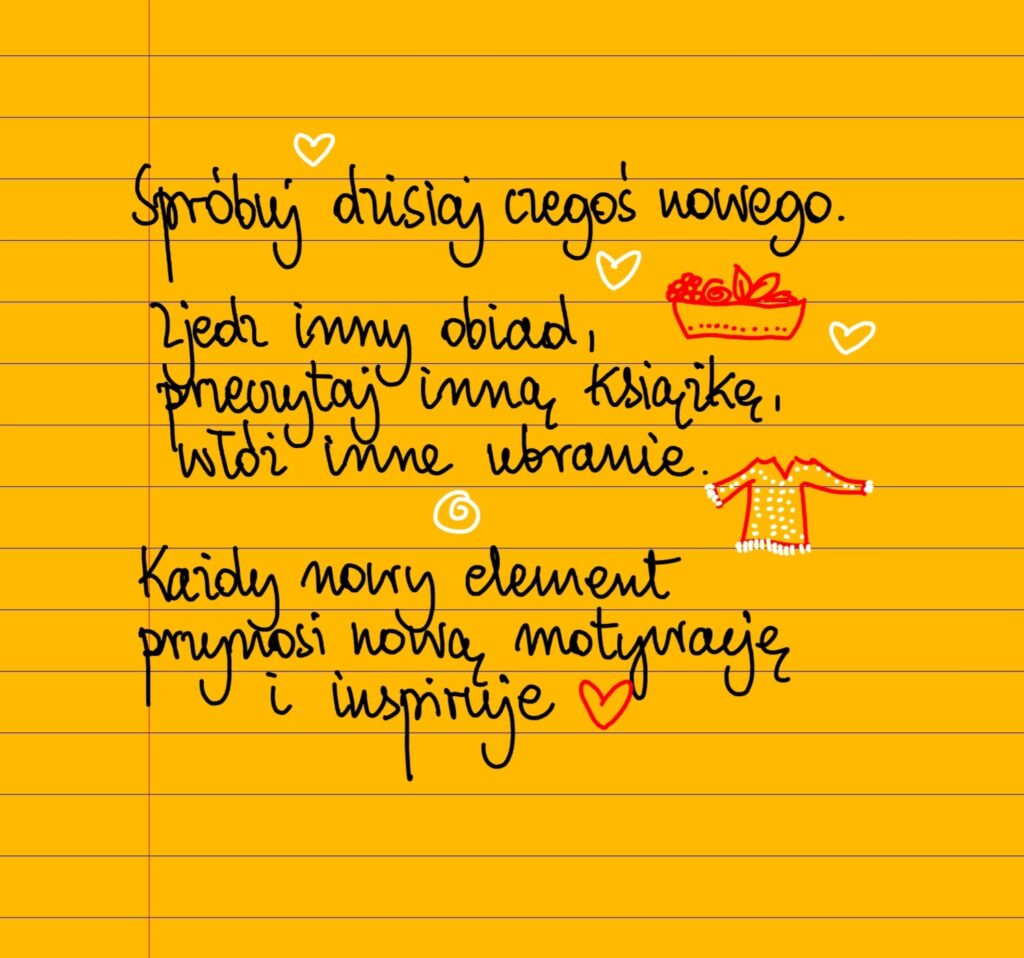 Spróbuj dzisiaj czegoś nowego.
Zjedz inny obiad,
przeczytaj inną książkę,
włóż inne ubranie.
Każdy nowy element
przynosi nową motywację
i inspiruje